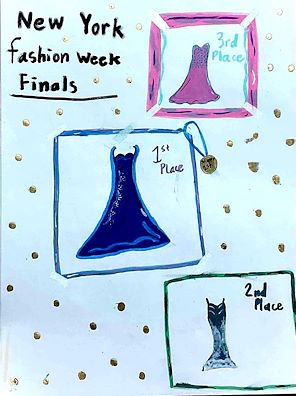 New York
fashion week
Finals
3rd
Place
1st
Place
2nd
Place